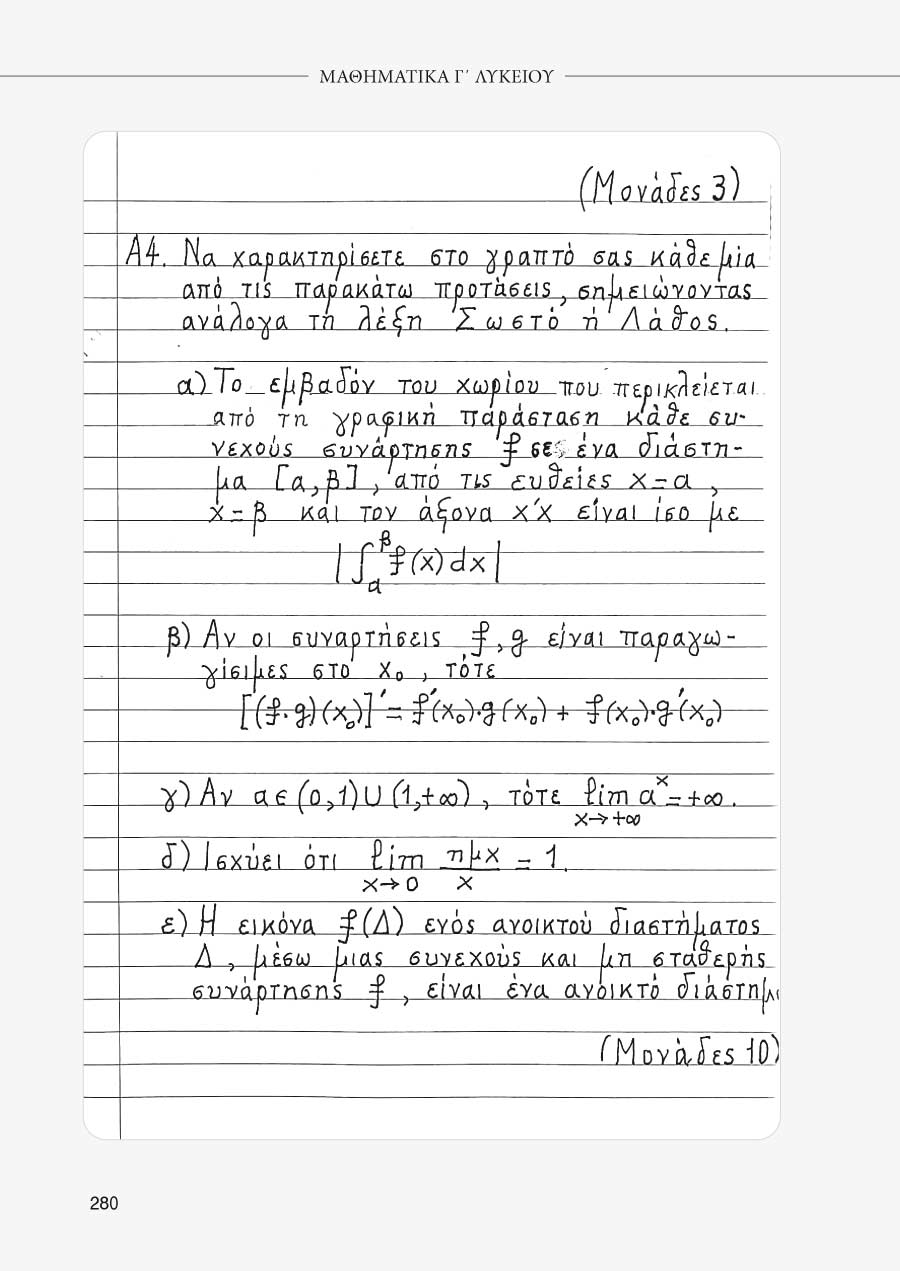 ΜΑΘΗΜΑΤΙΚΑ Γ΄ ΛΥΚΕΙΟΥ
(Μονάδες 3)
Α4. Να χαρακτηρίσετε στο γραπτό σας κάθε μία
από τις παρακάτω προτάσεις, σημειώνοντας
ανάλογα τη λέξη Σωστό ή Λάθος.
α) Το εμβαδόν του χωρίου που περικλείεται
από τη γραφική παράσταση κάθε συ-
νεχούς συνάρτησης f σε ένα διάστη-
μα [α, β], από τις ευθείες x = α,
x = β και τον άξονα x΄x είναι ίσο με
|∫_α^β f(x) dx|
β) Αν οι συναρτήσεις f, g είναι παραγω-
γίσιμες στο x₀, τότε
[(f·g)(x₀)]΄ = f΄(x₀)·g(x₀) + f(x₀)·g΄(x₀)
γ) Αν α ∈ (0,1) ∪ (1,+∞), τότε lim α^x = +∞.
x→+∞
δ) Ισχύει ότι lim ημx/x = 1.
x→0
ε) Η εικόνα f(Δ) ενός ανοικτού διαστήματος
Δ, μέσω μιας συνεχούς και μη σταθερής
συνάρτησης f, είναι ένα ανοικτό διάστημα
(Μονάδες 10)
280